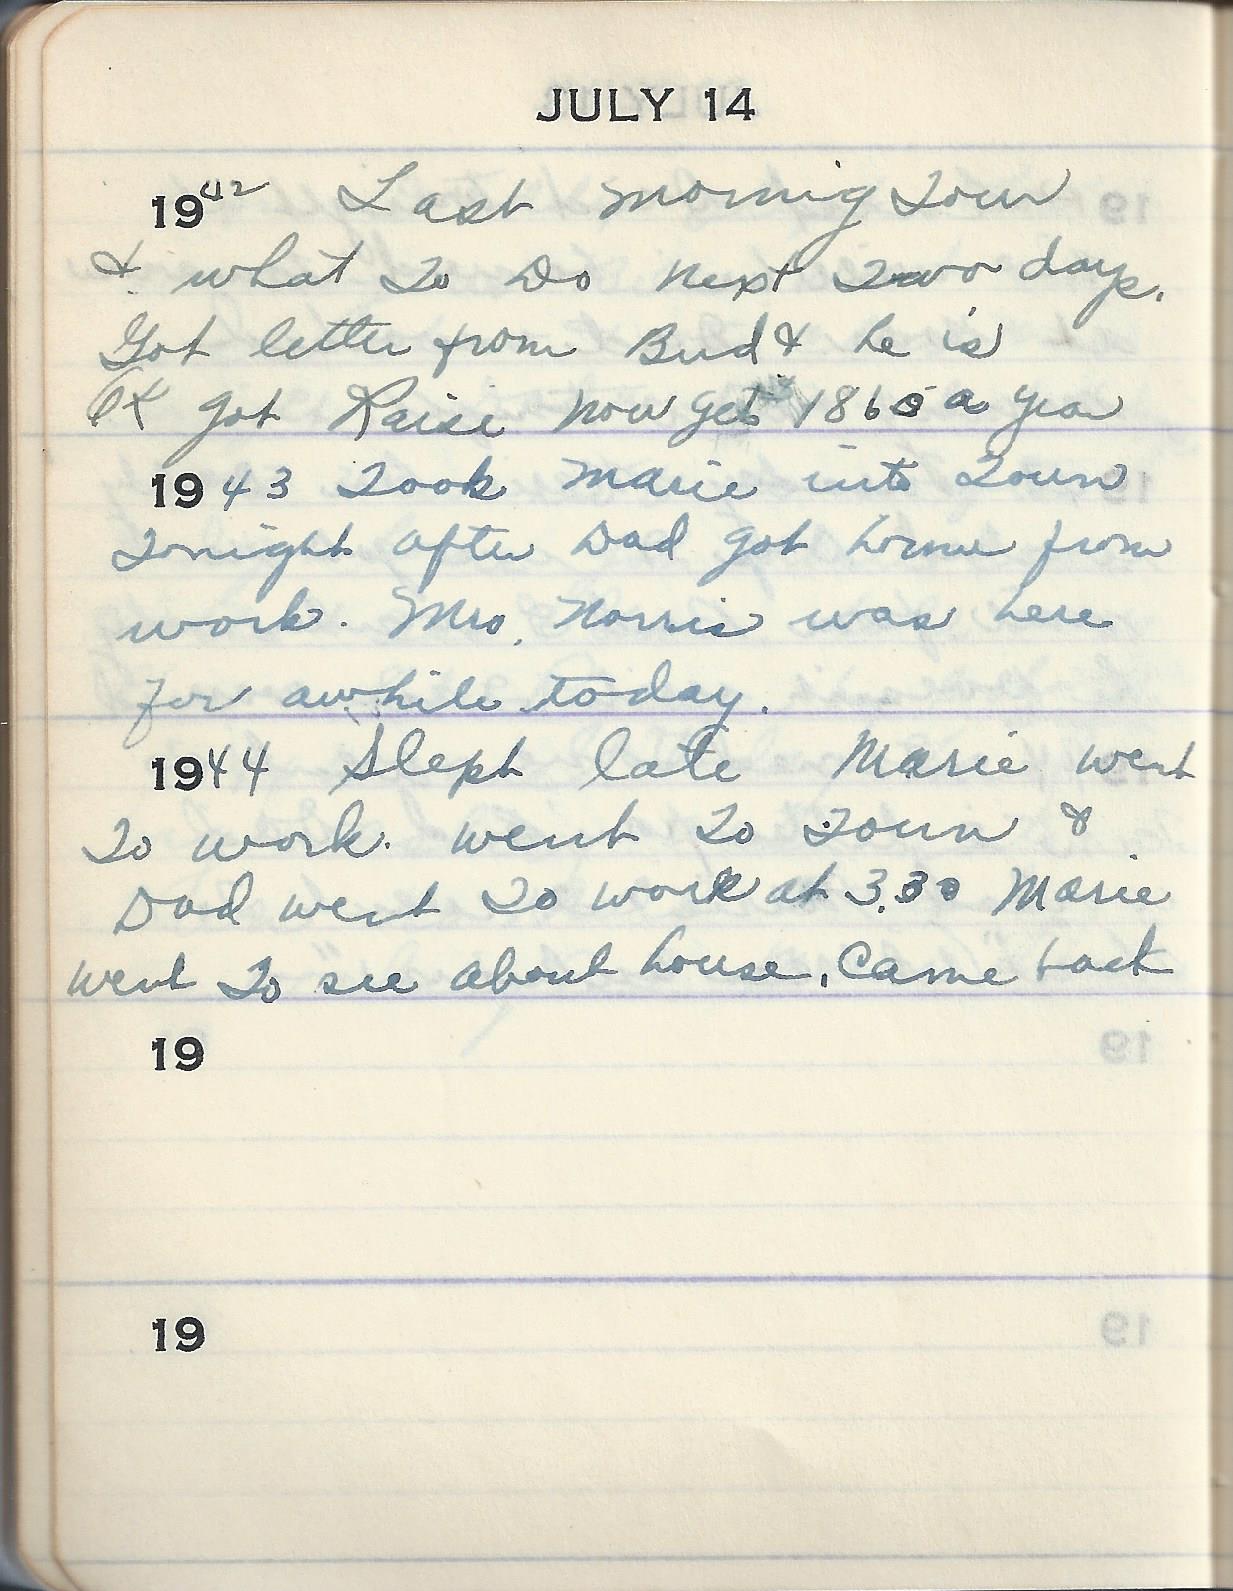 JULY 14
1942 Last morning Tour
& what To Do next Two days.
Got letter from Bud & he is
OK got Raise now gets 1860 a year
1943 Took Marie into Town
Tonight after Dad got home from
work. Mrs. Norris was here
for awhile today.
1944 Slept late Marie went
To work. went To Town &
Dad went To work at 3.30 Marie
went To see about house, Came back
19
19